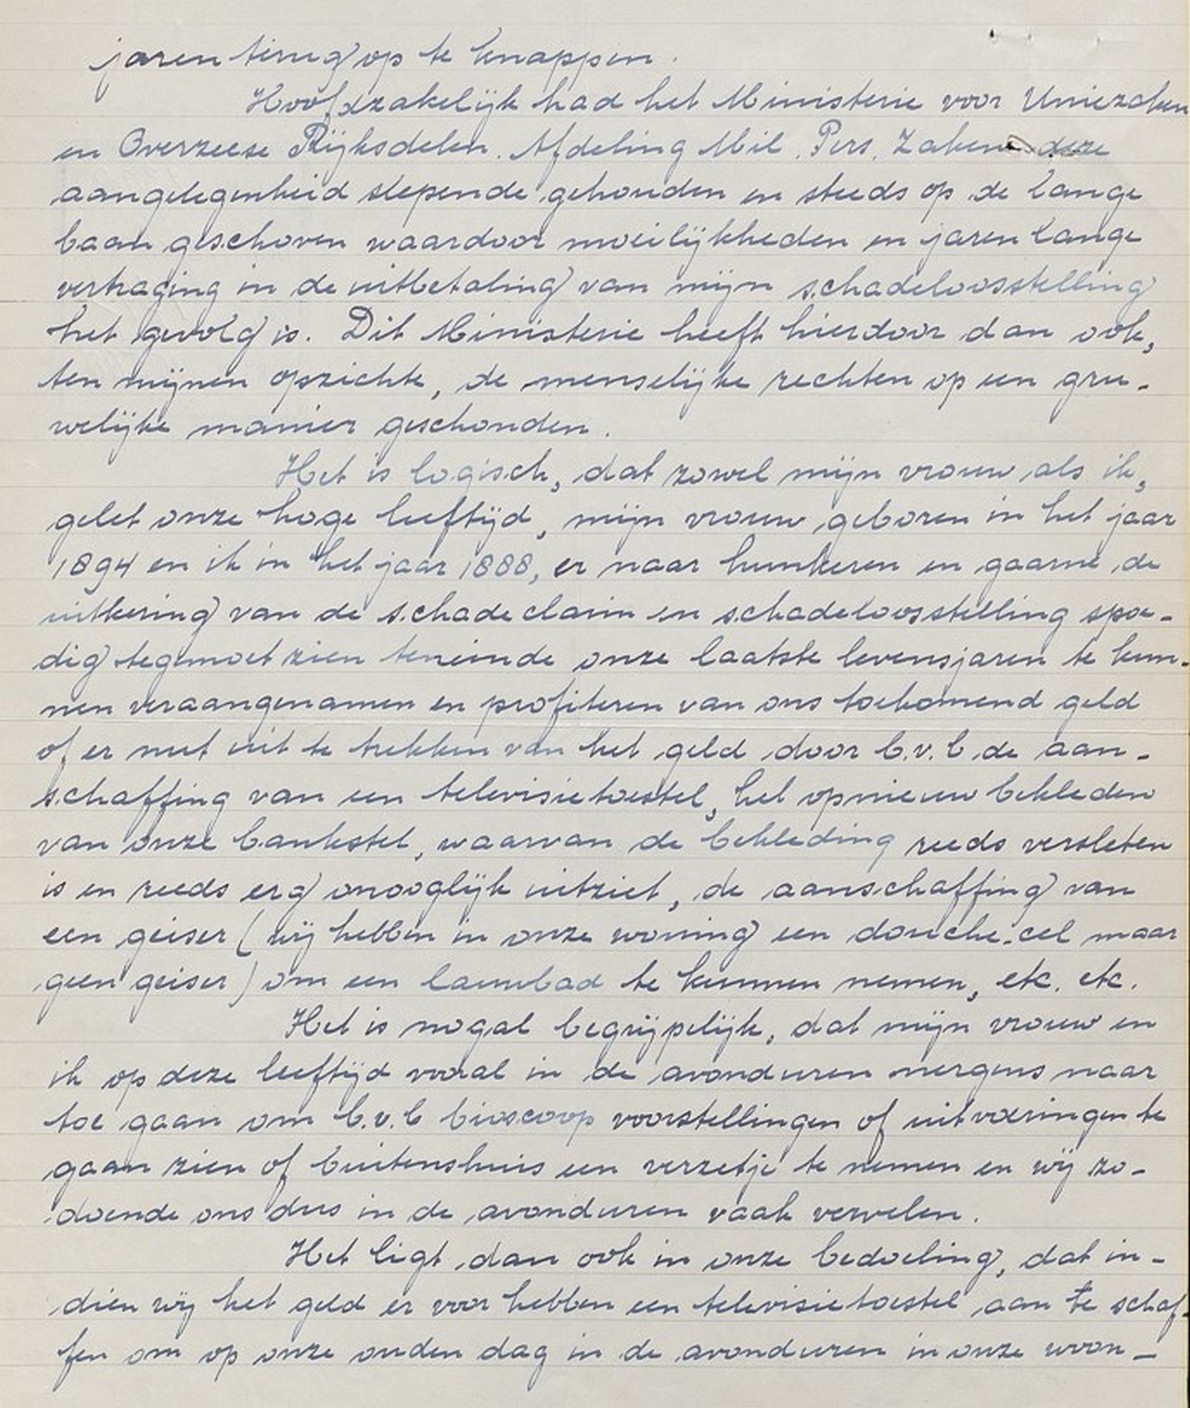 jaren terug op te knappen.
Hoofdzakelijk had het Ministerie voor Uniezaken
en Overzeese Rijksdelen. Afdeling Mil. Pers. Zaken deze
aangelegenheid slepende gehouden en steeds op de lange
baan geschoven waardoor moeilijkheden en jaren lange
vertraging in de uitbetaling van mijn schadeloosstelling
het gevolg is. Dit Ministerie heeft hierdoor dan ook,
ten mijnen opzichte, de menselijke rechten op een gru-
welijke manier geschonden.
Het is logisch, dat zowel mijn vrouw als ik,
gelet onze hoge leeftijd, mijn vrouw geboren in het jaar
1894 en ik in het jaar 1888, er naar hunkeren en gaarne de
uitkering van de schadeclaim en schadeloosstelling spoe-
dig tegemoet zien teneinde onze laatste levensjaren te kun-
nen veraangenamen en profiteren van ons toekomend geld
of er nut uit te trekken van het geld door b.v.b de aan-
schaffing van een televisietoestel, het opnieuw bekleden
van onze bankstel, waarvan de bekleding reeds versleten
is en reeds erg onooglijk uitziet, de aanschaffing van
een geiser (wij hebben in onze woning een douche-cel maar
geen geiser) om een lauwbad te kunnen nemen, etc. etc.
Het is nogal begrijpelijk, dat mijn vrouw en
ik op deze leeftijd vooral in de avonduren nergens naar
toe gaan om b.v.b bioscoop voorstellingen of uitvoeringen te
gaan zien of buitenshuis een verzetje te nemen en wij zo-
doende ons dus in de avonduren vaak vervelen.
Het ligt dan ook in onze bedoeling, dat in-
dien wij het geld er voor hebben een televisietoestel aan te schaf-
fen om op onze ouden dag in de avonduren in onze woon-